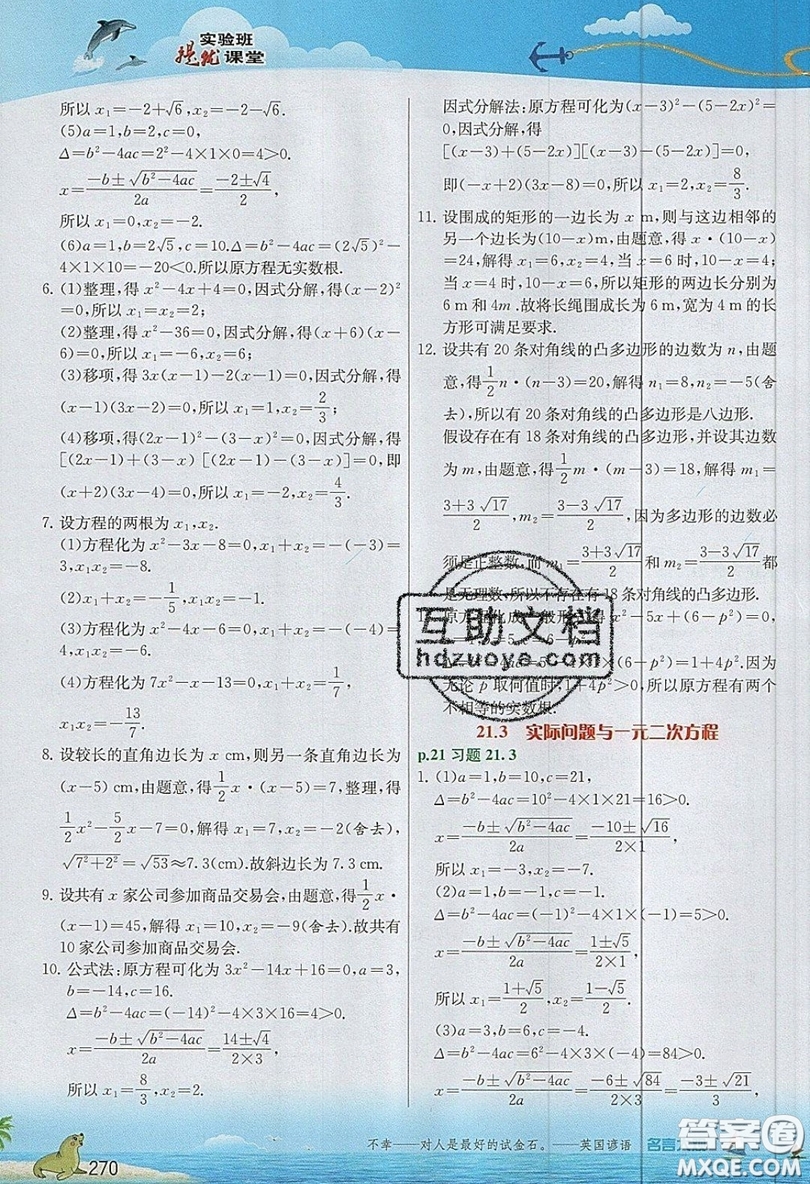 实验班
提优课堂
所以 x₁=-2+√6,x₂=-2-√6.
(5)a=1,b=2,c=0.
Δ=b²-4ac=2²-4×1×0=4>0.
x=(-b±√(b²-4ac))/2a=(-2±√4)/2,
所以 x₁=0,x₂=-2.
(6)a=1,b=2√5,c=10.Δ=b²-4ac=(2√5)²-
4×1×10=-20<0.所以原方程无实数根.
6. (1)整理,得 x²-4x+4=0,因式分解,得(x-2)²
=0,所以 x₁=x₂=2;
(2)整理,得 x²-36=0,因式分解,得(x+6)(x-
6)=0,所以 x₁=-6,x₂=6;
(3)移项,得 3x(x-1)-2(x-1)=0,因式分解,得
(x-1)(3x-2)=0,所以 x₁=1,x₂=2/3;
(4)移项,得(2x-1)²-(3-x)²=0,因式分解,得
[(2x-1)+(3-x) [(2x-1)-(3-x)]=0,即
(x+2)(3x-4)=0,所以 x₁=-2,x₂=4/3.
7. 设方程的两根为 x₁,x₂.
(1)方程化为 x²-3x-8=0,x₁+x₂=-(-3)=
3,x₁x₂=-8.
(2)x₁+x₂=-1/5,x₁x₂=-1.
(3)方程化为 x²-4x-6=0,x₁+x₂=-(-4)=
4,x₁x₂=-6.
(4)方程化为 7x²-x-13=0,x₁+x₂=1/7,
x₁x₂=-13/7.
8. 设较长的直角边长为 x cm,则另一条直角边长为
(x-5) cm,由题意,得1/2x·(x-5)=7,整理,得
1/2x²-5/2x-7=0,解得 x₁=7,x₂=-2(舍去),
√(7²+2²)=√53≈7.3(cm).故斜边长为 7.3 cm.
9. 设共有 x 家公司参加商品交易会,由题意,得1/2x·
(x-1)=45,解得 x₁=10,x₂=-9(舍去).故共有
10 家公司参加商品交易会.
10. 公式法:原方程可化为 3x²-14x+16=0,a=3,
b=-14,c=16.
Δ=b²-4ac=(-14)²-4×3×16=4>0.
x=(-b±√(b²-4ac))/2a=(14±√4)/(2×3),
所以 x₁=8/3,x₂=2.
因式分解法:原方程可化为(x-3)²-(5-2x)²=
0,因式分解,得
[(x-3)+(5-2x)][(x-3)-(5-2x)]=0,
即(-x+2)(3x-8)=0,所以 x₁=2,x₂=8/3.
11. 设围成的矩形的一边长为 x m,则与这边相邻的
另一个边长为(10-x)m,由题意,得 x·(10-x)
=24,解得 x₁=6,x₂=4,当 x=6 时,10-x=4;
当 x=4 时,10-x=6,所以矩形的两边长分别为
6 m 和 4m.故将长绳围成长为 6 m,宽为 4 m 的长
方形可满足要求.
12. 设共有 20 条对角线的凸多边形的边数为 n,由题
意,得1/2n·(n-3)=20,解得 n₁=8,n₂=-5(舍
去),所以有 20 条对角线的凸多边形是八边形.
假设存在有 18 条对角线的凸多边形,并设其边数
为 m,由题意,得1/2m·(m-3)=18,解得 m₁=
(3+3√17)/2,m₂=(3-3√17)/2,因为多边形的边数必
须是正整数,而 m₁=(3+3√17)/2 和 m₂=(3-3√17)/2 都
是无理数,所以不存在有 18 条对角线的凸多边形.
原方程化成一般形式,得 x²-5x+(6-p²)=0,
×(6-p²)=1+4p².因为
无论 p 取何值时,1+4p²>0,所以原方程有两个
不相等的实数根.
互助文档
hdzuoye.com
21.3 实际问题与一元二次方程
p.21 习题 21.3
1. (1)a=1,b=10,c=21,
Δ=b²-4ac=10²-4×1×21=16>0.
x=(-b±√(b²-4ac))/2a=(-10±√16)/(2×1),
所以 x₁=-3,x₂=-7.
(2)a=1,b=-1,c=-1.
Δ=b²-4ac=(-1)²-4×1×(-1)=5>0.
x=(-b±√(b²-4ac))/2a=(1±√5)/(2×1),
所以 x₁=(1+√5)/2,x₂=(1-√5)/2.
(3)a=3,b=6,c=-4.
Δ=b²-4ac=6²-4×3×(-4)=84>0.
x=(-b±√(b²-4ac))/2a=(-6±√84)/(2×3)=(-3±√21)/3,
270
不幸——对人是最好的试金石。——英国谚语 名言
答案圈
MXQE.COM